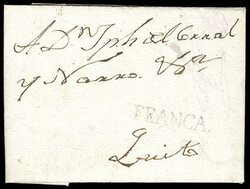 A Dn Jph del Corral
y Narro
FRANCA.
Quito